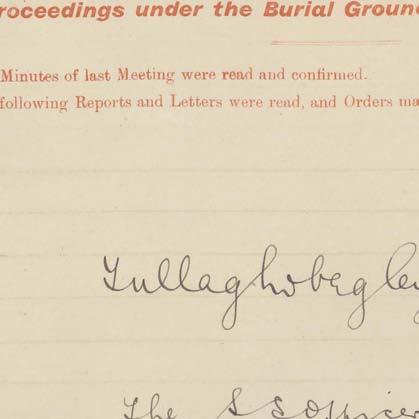 roceedings under the Burial Groun
Minutes of last Meeting were read and confirmed.
following Reports and Letters were read, and Orders ma
Tullaghobegley
The S S Officer